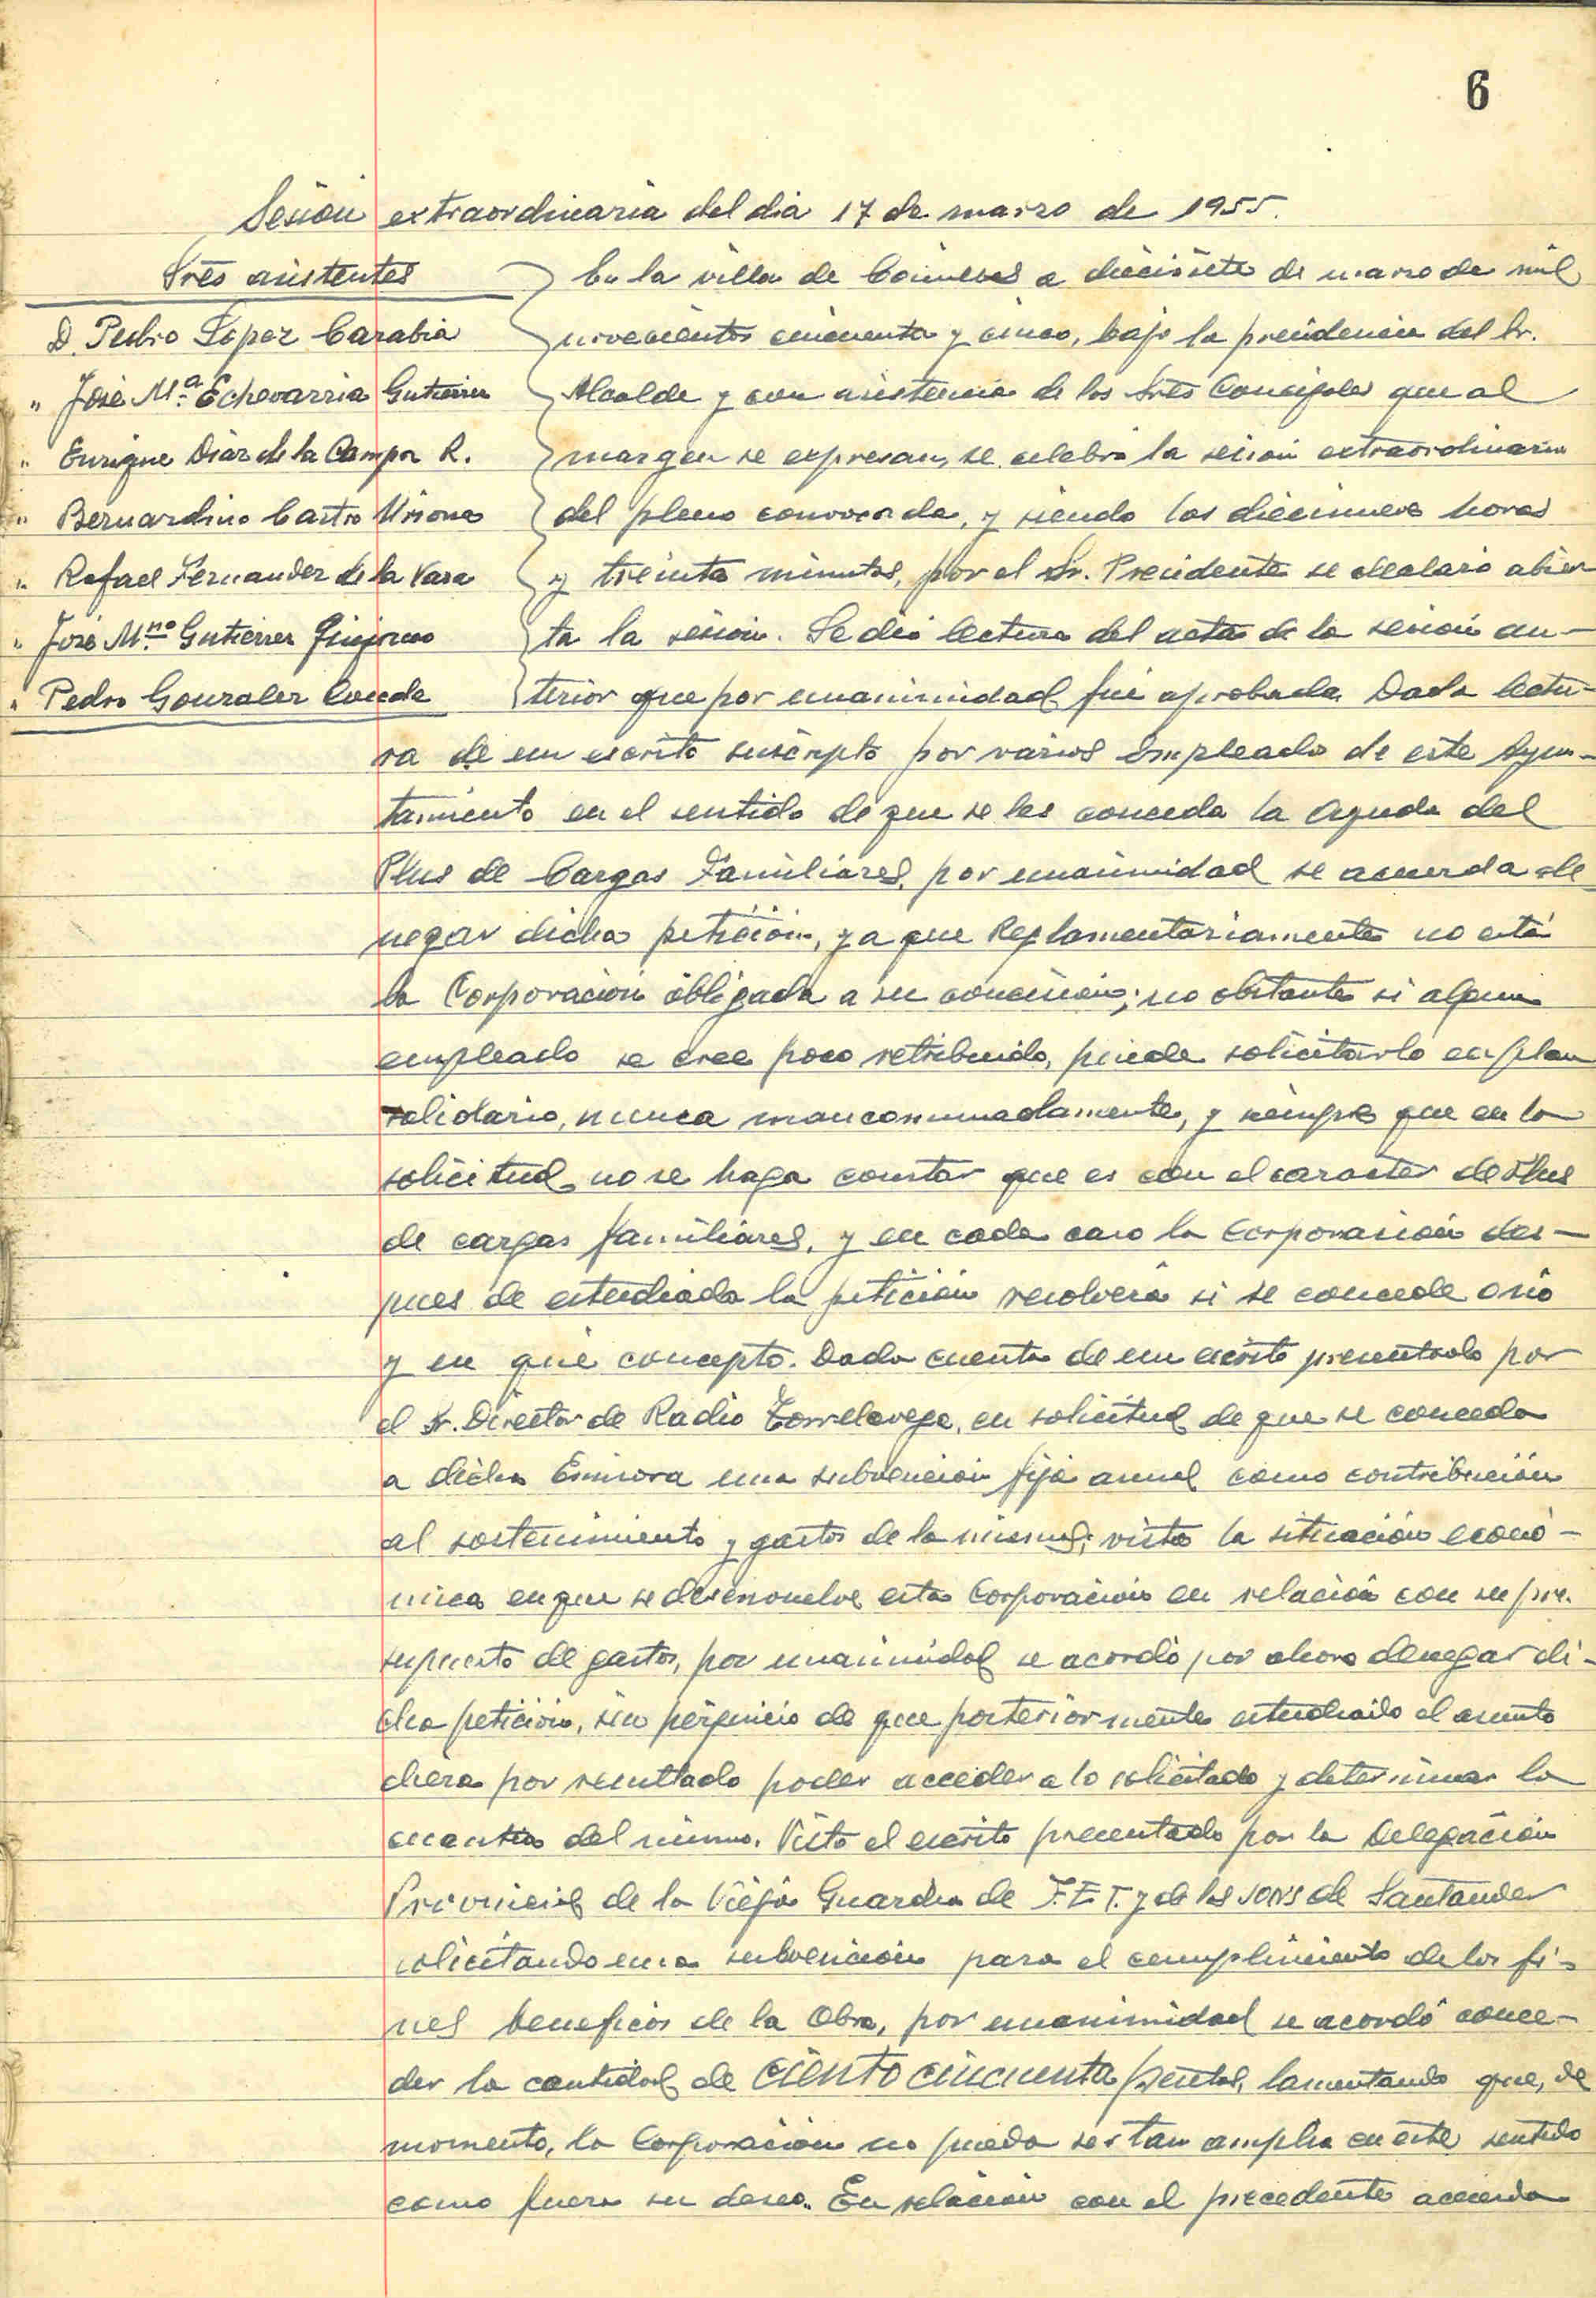 6
Sesión extraordinaria del dia 17 de marzo de 1955.
Sres asistentes
D. Pedro Lopez Carabia
" José Mª Echevarria Gutierrez
" Enrique Diaz de la Campa R.
" Bernardino Castro
" Rafael Fernandez de la Vara
" José Mno Gutierrez
" Pedro Gonzalez Conde
En la villa de Comillas a diecisiete de marzo de mil
novecientos cincuenta y cinco, bajo la presidencia del Sr.
Alcalde y con asistencia de los Sres Concejales que al
margen se expresan, se celebró la sesión extraordinaria
del pleno convocada, y siendo las diecinueve horas
y treinta minutos, por el Sr. Presidente se declaró abier
ta la sesión. Se dió lectura del acta de la sesión an-
terior que por unanimidad fué aprobada. Dada lectu-
ra de un escrito suscripto por varios empleado de este Ayun-
tamiento en el sentido de que se les conceda la Ayuda del
Plus de Cargas Familiares, por unanimidad se acuerda de
negar dicha petición, ya que Reglamentariamente no está
la Corporación obligada a su concesión; no obstante si algun
empleado se cree poco retribuido, puede solicitarlo en plan
solidario, nunca mancomunadamente, y siempre que en la
solicitud no se haga constar que es con el caracter de Plus
de cargas familiares, y en cada caso la Corporación des-
pues de estudiada la petición resolverá si se concede o nó
y en qué concepto. Dada cuenta de un escrito presentado por
el Sr. Director de Radio Torrelavega, en solicitud de que se conceda
a dicha Emisora una subvención fija anual como contribución
al sostenimiento y gastos de la misma; vista la situación econó-
mica en que se desenvuelve esta Corporación en relación con su pre.
supuesto de gastos, por unanimidad se acordó por ahora denegar di-
cha petición, sin perjuicio de que posteriormente estudiado el asunto
diera por resultado poder acceder a lo solicitado y determinar la
cuantia del mismo. Visto el escrito presentado por la Delegación
Provincial de la Vieja Guardia de F.E.T. y de las JONS de Santander
solicitando una subvención para el cumplimiento de los fi-
nes beneficos de la Obra, por unanimidad se acordó conce-
der la cantidad de ciento cincuenta pesetas, lamentando que, de
momento, la Corporación no pueda ser tan amplia en este sentido
como fuera su deseo. En relación con el precedente acuerdo